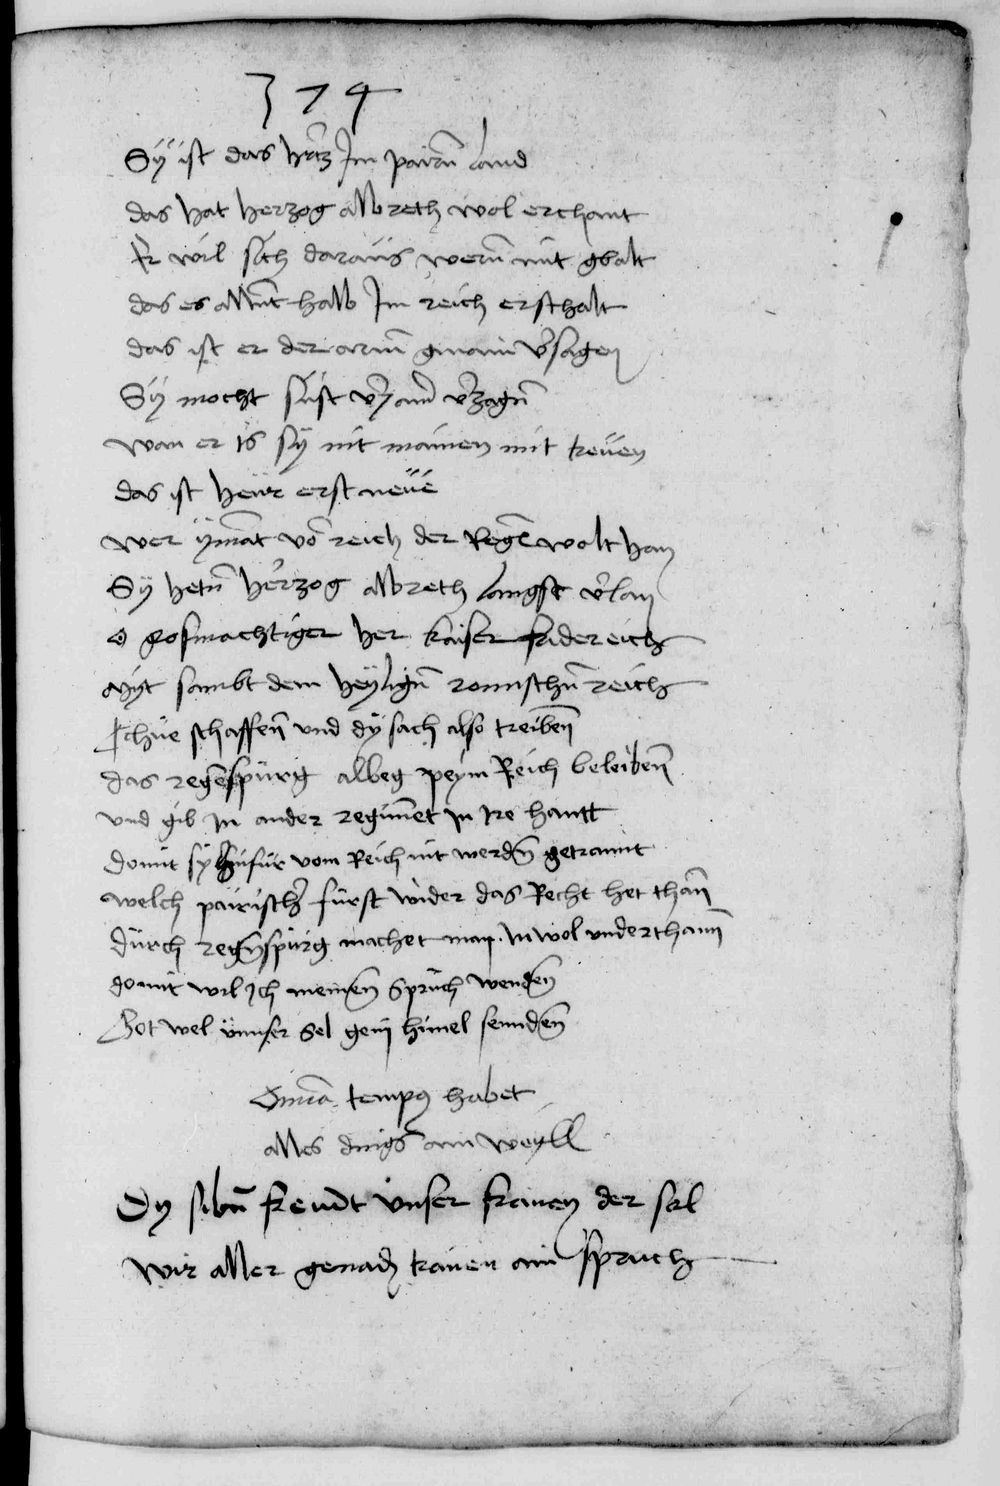 374
Sÿ ist das hertz Im pairn̄ land
das hat herzog albreth wol erchant
Er wil sich daraus wern̄ mit gbalt
das es allent halb Im reich erschalt
das ist er der arm̄ gmain v̄sagen
Sÿ mocht süst v̄zagn̄
wan er sÿ nit mainen mit treuen
das ist heür erst neüe
wer vō reich der Regn̄ wolt han
Sÿ hetn̄ herzog albreth langst v̄lan
O gosmachtiger her kaiser fridereich
mÿt sambt dem heÿlign̄ romischn̄ reich
schaffen̄ und dÿ sach also treiben̄
das regēspürg albeg peym Reich beleiben̄
und gib in ander regimēt in ire hantt
domit sÿ hinfür vom Reich nit werdn̄ getrannt
welch pairisch̄ fürst wider das Recht het than̄
dürch regn̄spürg machet man In wol underthann̄
domit wil Ich meinen̄ sprüch wenden̄
Got wel ünnser sel gein himel sennden̄
Omīa tempus habet
alles dings ain weyll
Dy sibn̄ freudt ünser frauen der sel
wir aller genadn̄ trauen ain spruch